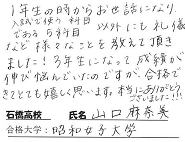 1年生の時からお世話になり、
入試で使う科目
である5科目 以外にも礼儀
など様々なことを教えて頂き
ました！3年生になって成績が
伸び悩んでいたのですが、合格で
きてとても嬉しく思います。本当にありがとう
ございました!!!
石橋高校 氏名 山口麻奈美
合格大学：昭和女子大学